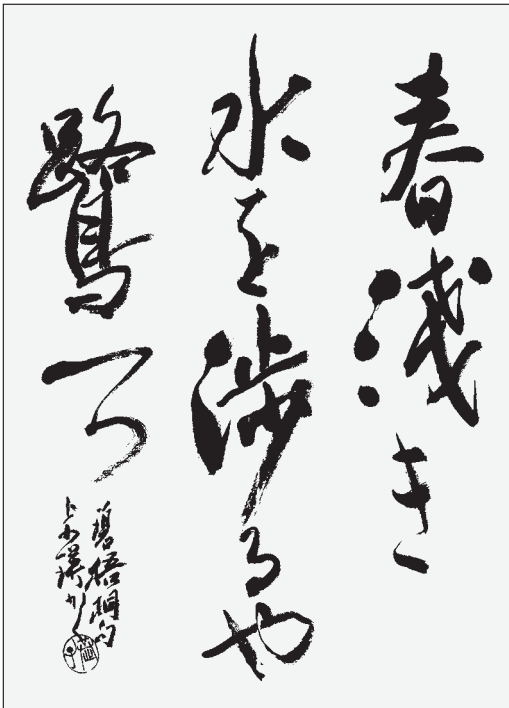 春浅き
水を渉るや
鷺一つ
碧梧桐句